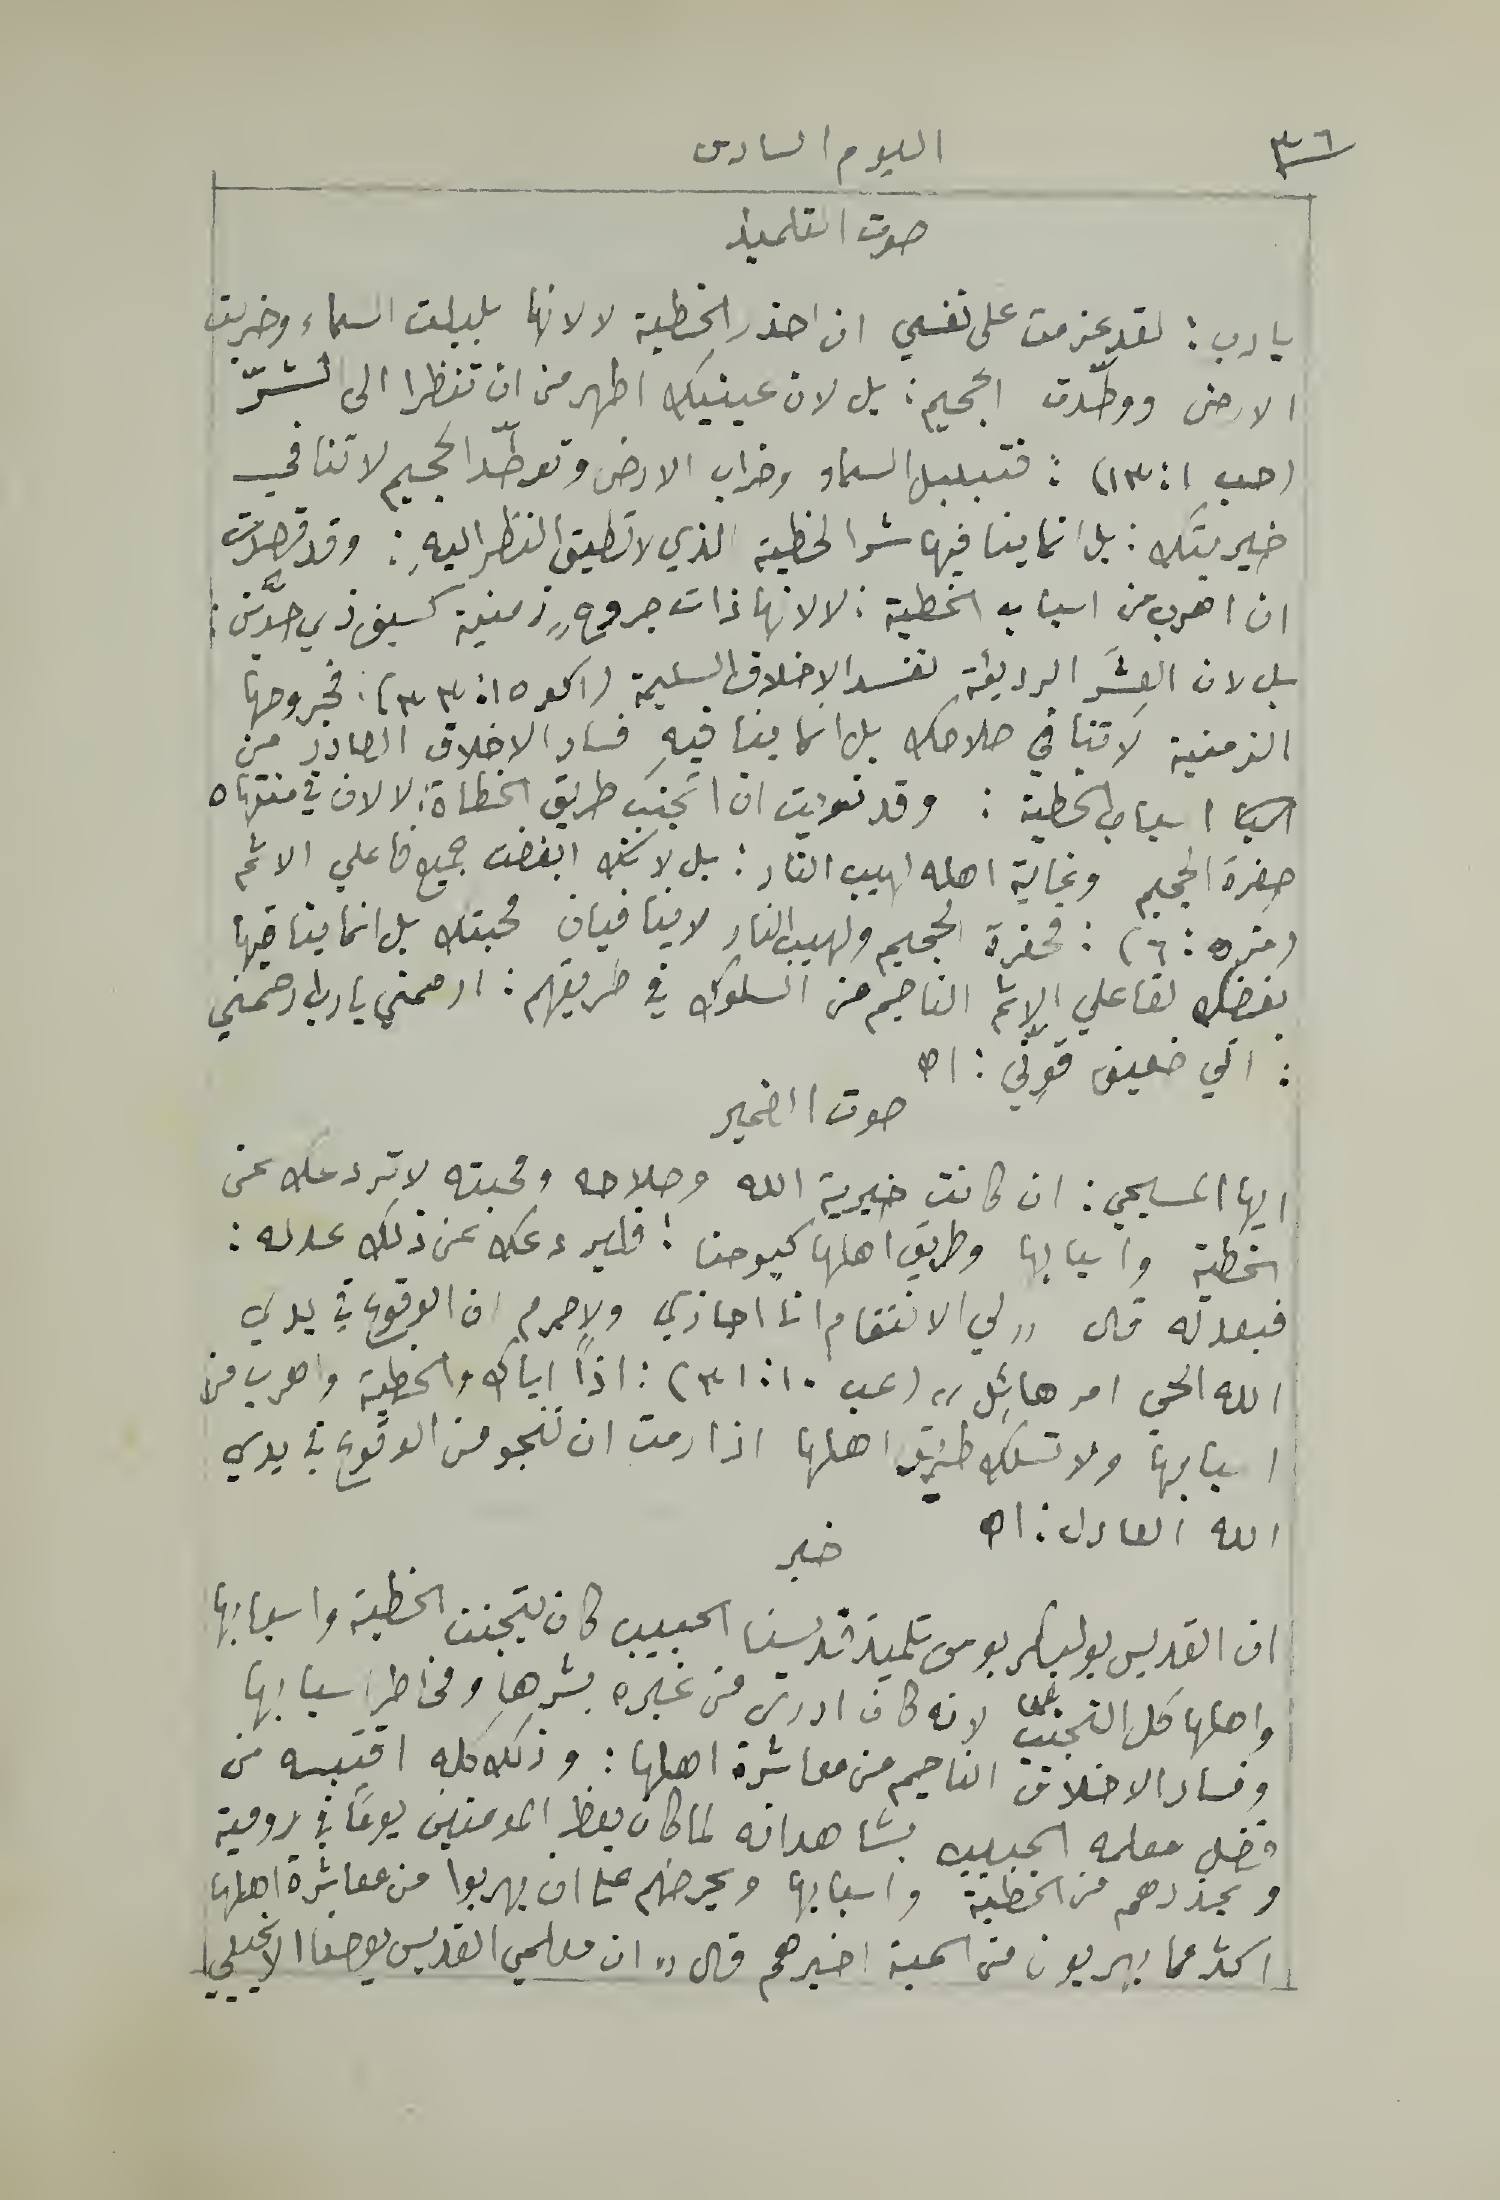 ٣٦
اليوم السادس
صوت التلميذ
يا رب : لقد عزمت على نفسي ان احذر الخطية لا لانها بلبلت السماء وخربت
الارض ووطّدت الجحيم : بل لان عينيك اطهر من ان تنظرا الى الشرّ
(حب ١ : ١٣) : فتبلبل السماء وخراب الارض وتوطّد الجحيم لا تنافي
خيريتك : بل انما ينافيها شر الخطية الذي لا تطيق النظر اليهِ : وقد قصدت
ان اهرب من اسباب الخطية : لا لانها ذات جروحٍ زمنية كسيف ذي حدَّين :
بل لان العِشَر الرديئة تفسد الاخلاق السليمة (١كو ١٥ : ٣٣) : فجروحها
الزمنية لا تنافي صلاحك بل انما ينافيهِ فساد الاخلاق الصادر من
اسباب الخطية : وقد نويت ان اتجنب طريق الخطاة : لا لان في منتهاه
حفرة الجحيم ونهاية اهله لهيب النار : بل لانك ابغضت جميع فاعلي الاثم
(مز ٥ : ٦) : فحفرة الجحيم ولهيب النار لا ينافيان محبتك بل انما ينافيها
بغضك لفاعلي الاثم الناجم من السلوك في طريقهم : ارحمني يا رب ارحمني
: انّي ضعيف قوِّني : اه
صوت الضمير
ايها المسيحي : ان كانت خيرية الله وصلاحه ومحبته لا تردعك عن
الخطية واسبابها وطريق اهلها كيوحنا : فليردعك عن ذلك عدله :
فبعدله قال „ لي الانتقام انا اجازي ولا جرم ان الوقوع في يدي
الله الحي امر هائل „ (عب ١٠ : ٣١) : اذًا اياك والخطية واهرب من
اسبابها ولا تسلك طريق اهلها اذا رمت ان تنجو من الوقوع في يدي
الله العادل : اه
خبر
ان القديس بوليكربوس تلميذ قديسنا الحبيب كان يتجنب الخطية واسبابها
واهلها كل التجنب لانه كان ادرى من غيره بشرها ومخاطر اسبابها
وفساد الاخلاق الناجم من معاشرة اهلها : وذلك كله اقتبسه من
فضل معلمه الحبيب بشاهد انه لما كان يعظ المومنين يومًا في رومية
ويحذرهم من الخطية واسبابها ويحرضهم على ان يهربوا من معاشرة اهلها
اكثر مما يهربون من الحية اخبرهم قال „ ان معلمي القديس يوحنا الانجيلي